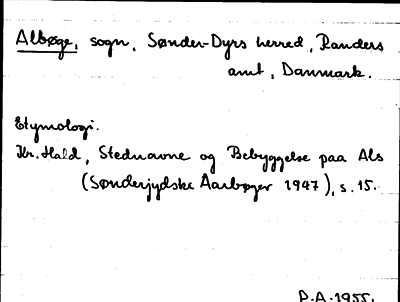 Albøge, sogn, Sønder-Dyrs herred, Randers
amt, Danmark.
Etymologi.
Kr. Hald, Stednavne og Bebyggelse paa Als
(Sønderjydske Aarbøger 1947), s. 15.
P.A. 1955.